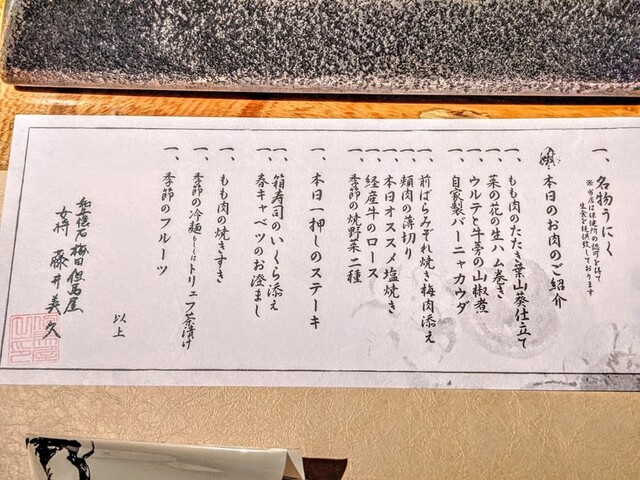 一、名物うにく
※当店は保健所の認可を得て
生食を提供致しております
本日のお肉のご紹介
一、もも肉のたたき葉山葵仕立て
菜の花の生ハム巻き
ウルテと牛蒡の山椒煮
自家製バーニャカウダ
一、前ばらみぞれ焼き梅肉添え
頬肉の薄切り
本日オススメ塩焼き
経産牛のロース
季節の焼野菜二種
一、本日一押しのステーキ
一、箱寿司のいくら添え
一、春キャベツのお澄まし
一、もも肉の焼きすき
一、季節の冷麺もしくはトリュフ茶漬け
一、季節のフルーツ
以上
和牛懐石 梅田 但馬屋
女将 藤井美久